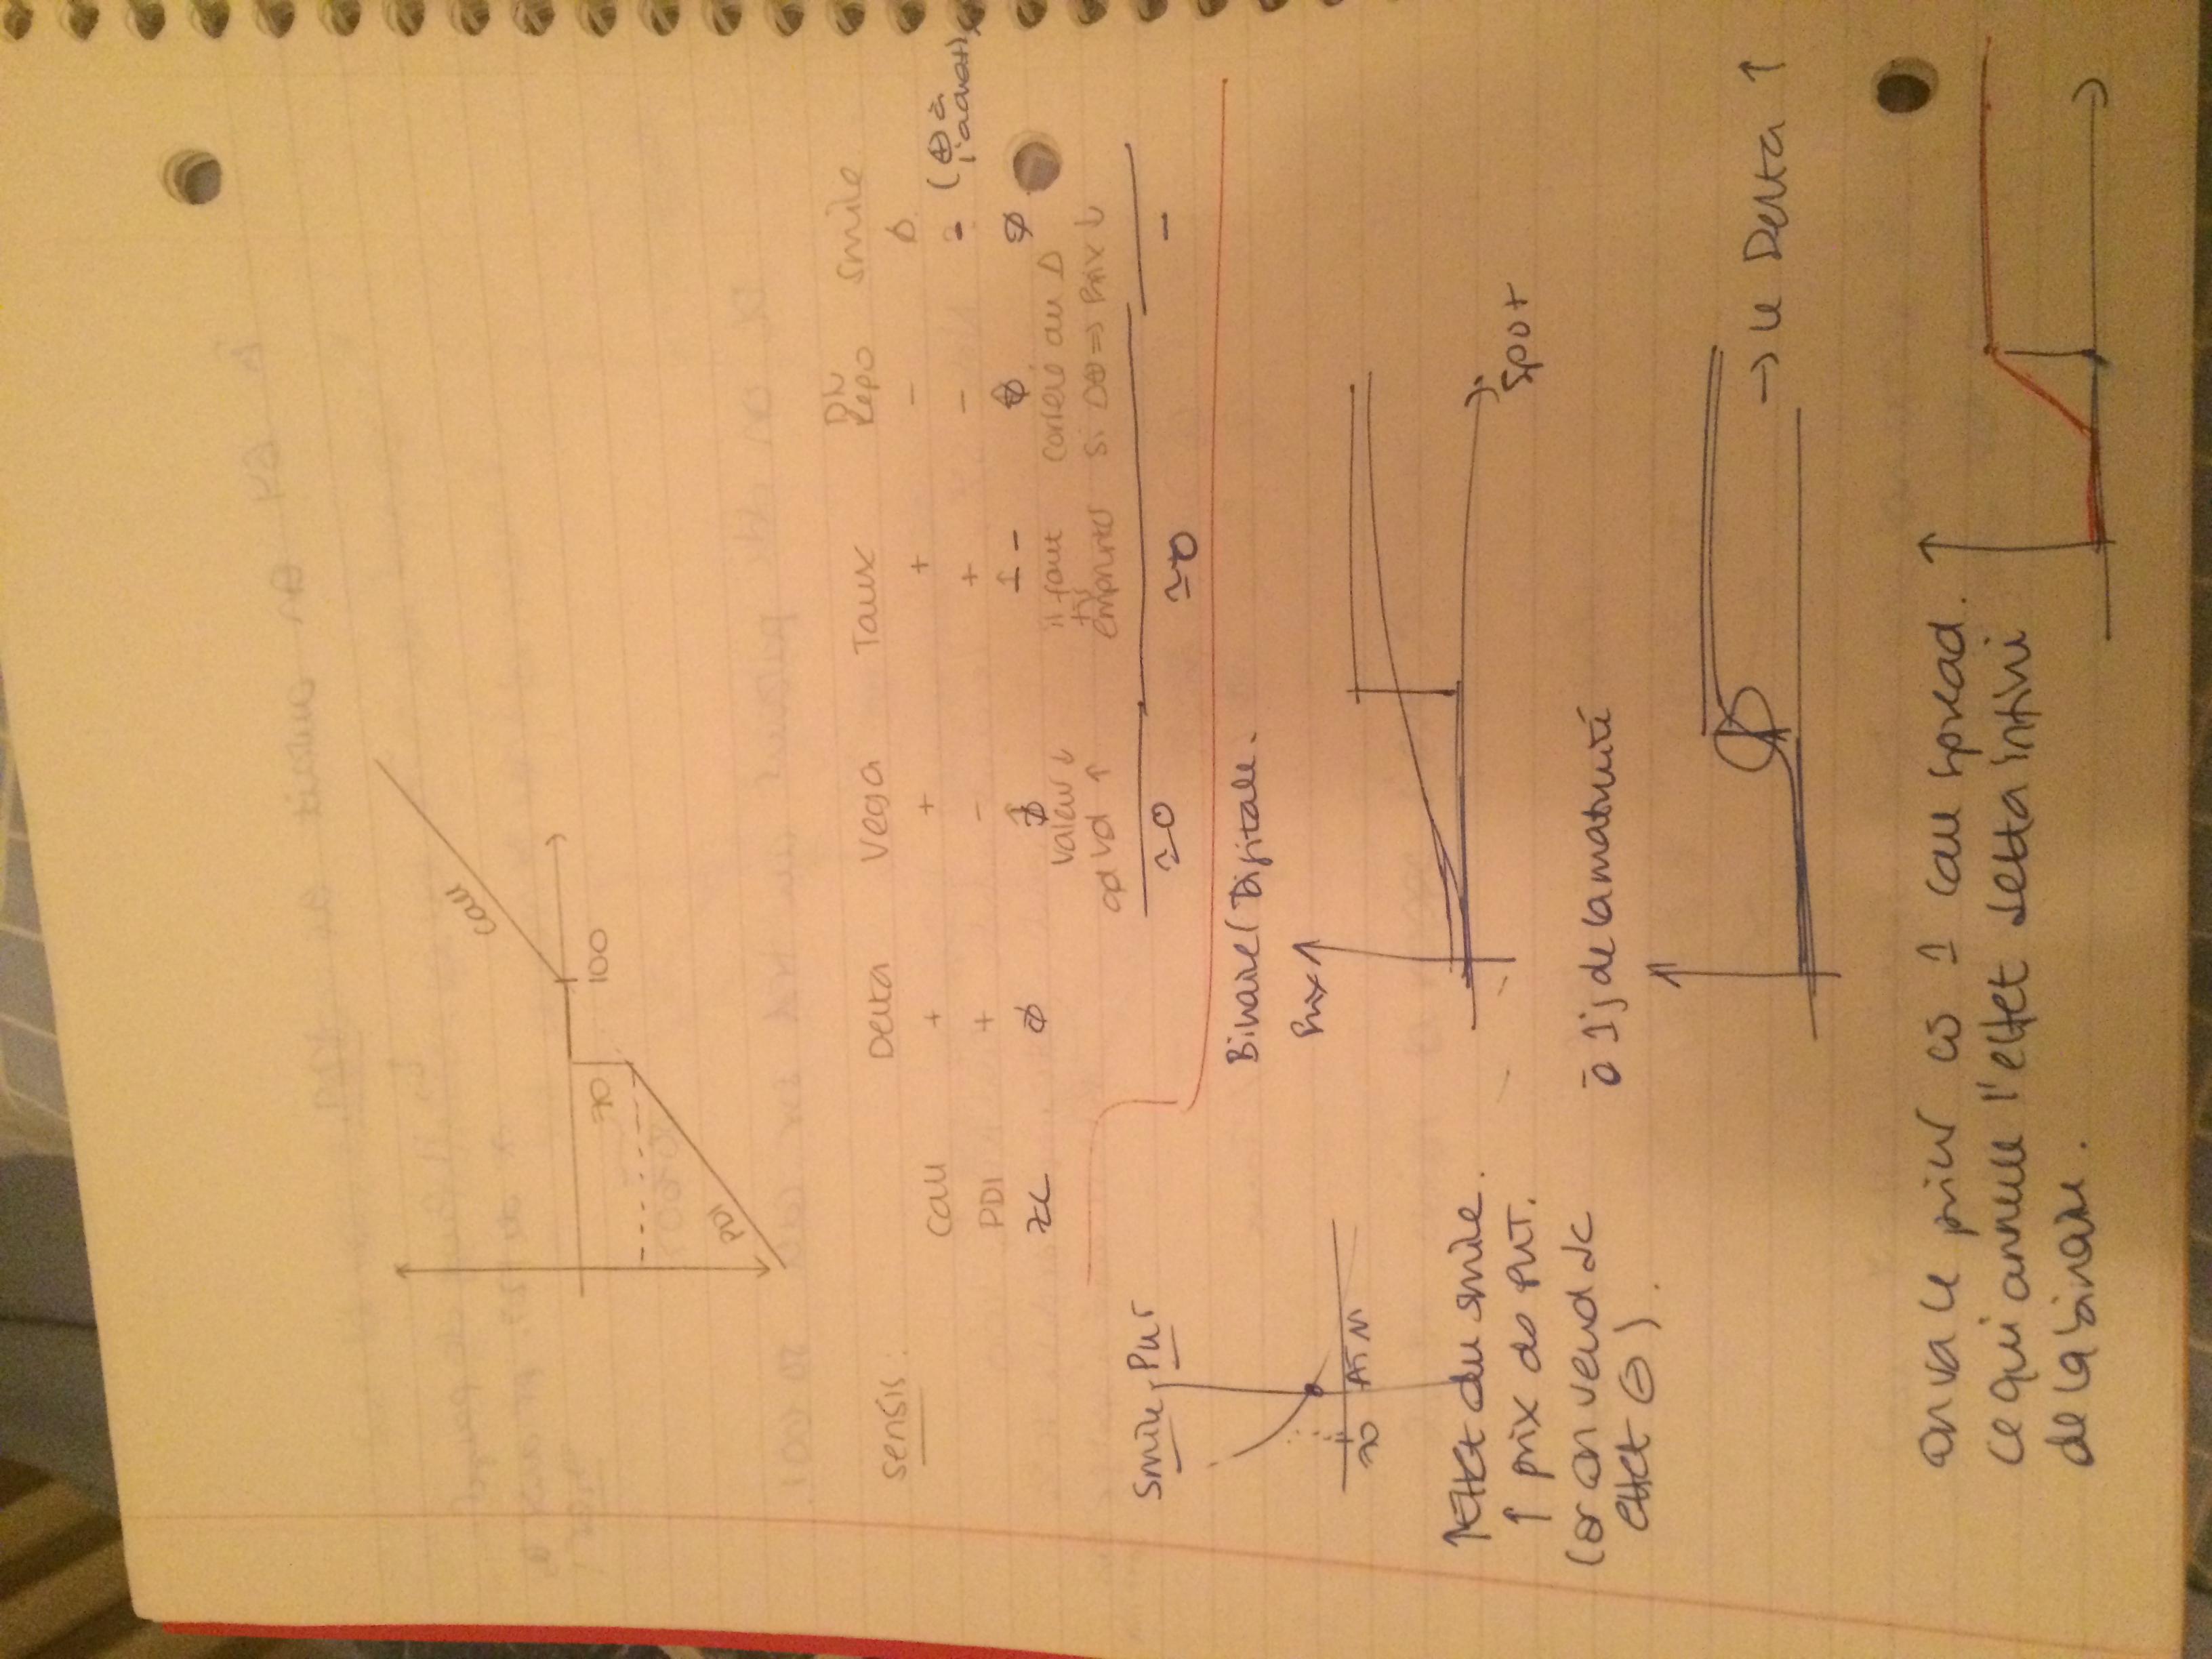 Call
70
100
PDI
sensis :
Delta Vega Taux DN Repo Smile
Call + + + - ∅
PDI + - + - - (⊕ à l'achat)
ZC ∅ ∅ - - ∅ ∅
valeur ↓ il faut corrélé au D
qd vol ↑ emprunter si D⊕ => Prix ↓
≃0 ≃0 -
Smile Put
70 ATM
↑ Effet du smile.
↑ prix do PUT.
(or on vend dc
effet ⊖).
Binaire/Digitale.
Prix
Spot
à 1j de la maturité
→ le Delta ↑
on va le pricer co 1 call spread.
ce qui annule l'effet delta infini
de la binaire.